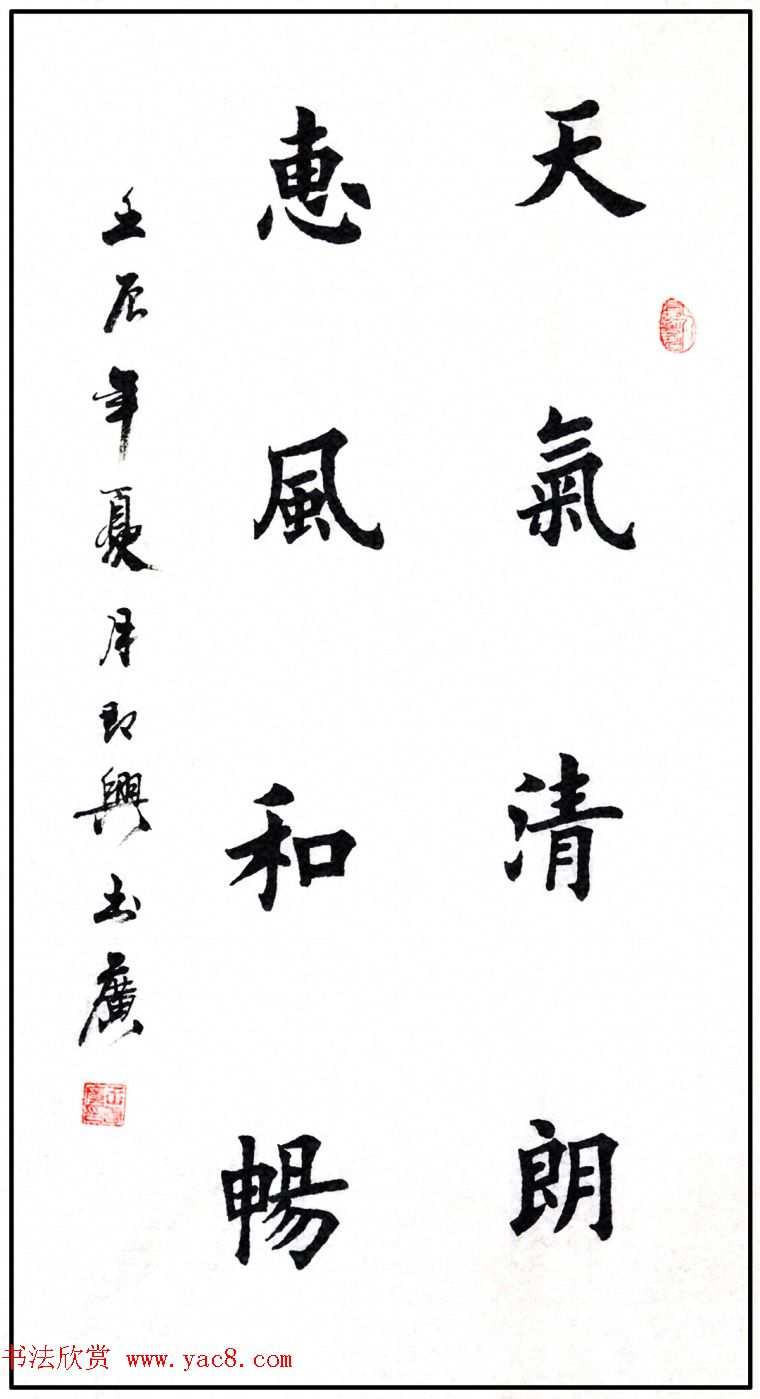 天氣清朗
惠風和暢
壬辰年夏月即興書廣
书法欣赏 www.yac8.com